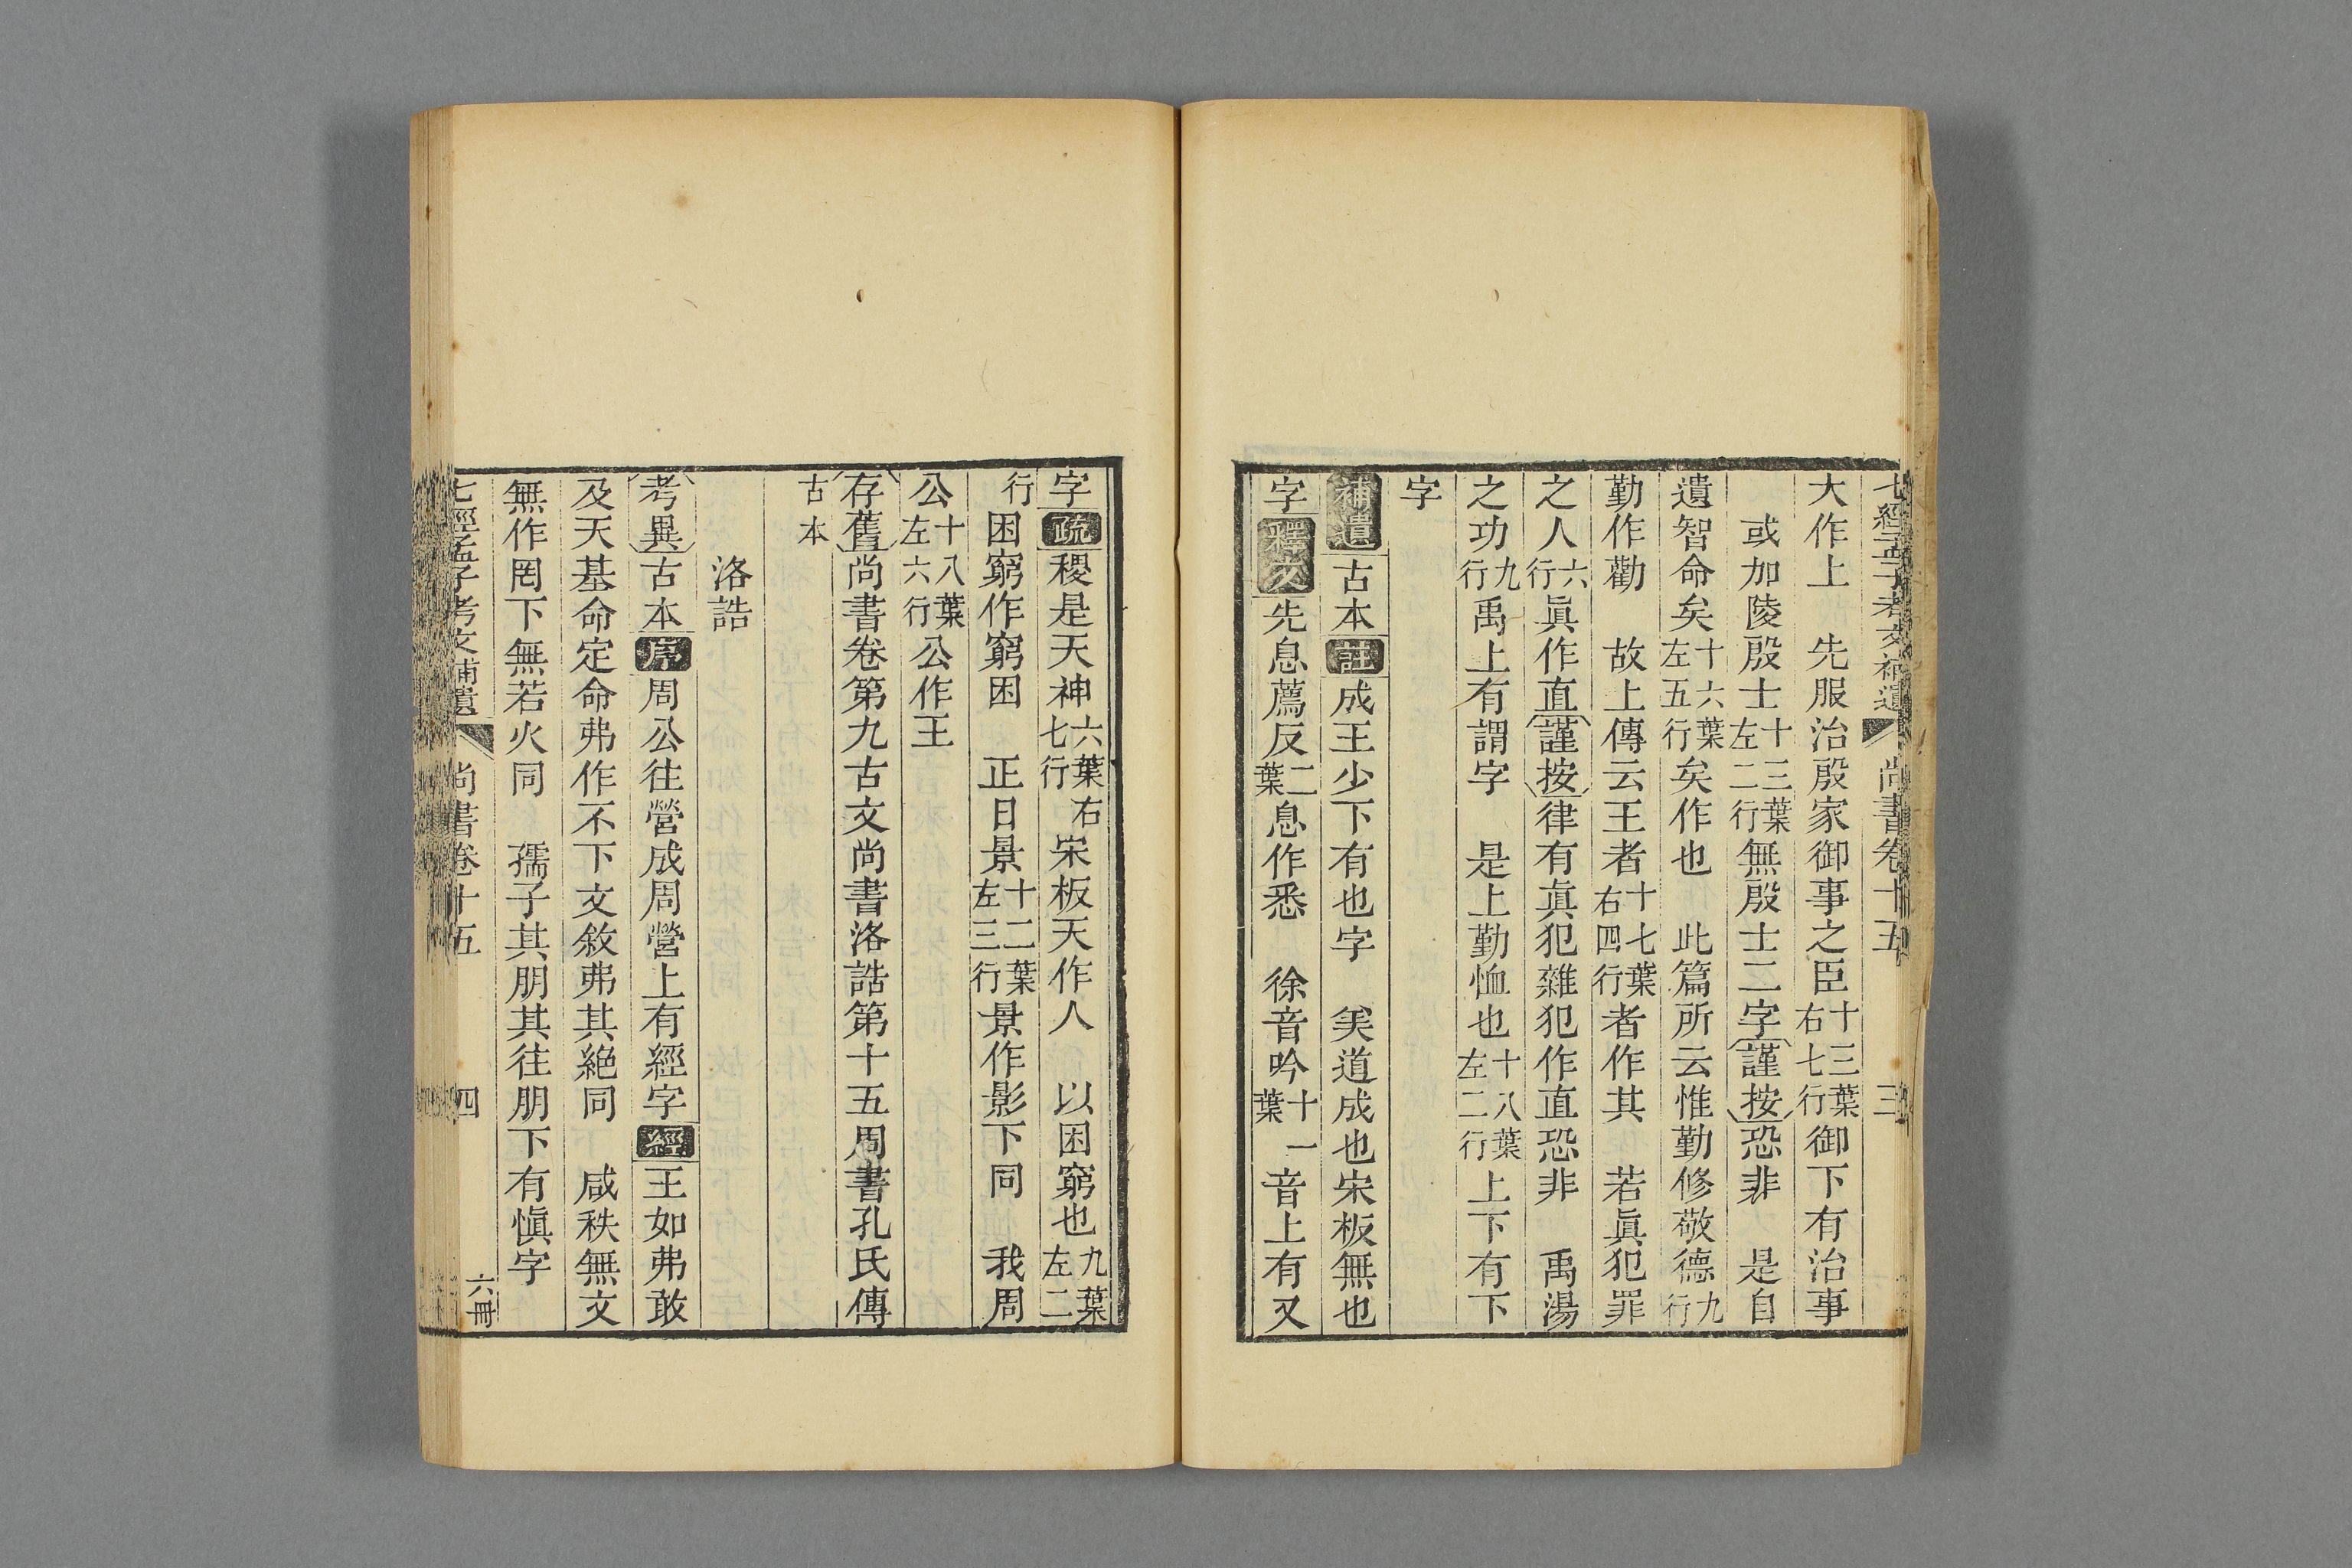 七經孟子考文補遺 尚書卷十五 三
大作上 先服治殷家御事之臣十三葉右七行御下有治事
或加陵殷士十三葉左二行無殷士二字謹按恐非 是自
遺智命矣十六葉左五行矣作也 此篇所云惟勤修敬德九行
勤作勸 故上傳云王者十七葉右四行者作其 若眞犯罪
之人六行眞作直謹按律有眞犯雜犯作直恐非 禹湯
之功九行禹上有謂字 是上勤恤也十八葉左二行上下有下
字
補遺古本註成王少下有也字 美道成也宋板無也
字釋文先息薦反二葉息作悉 徐音吟十一葉音上有又
字疏稷是天神六葉右七行宋板天作人 以困窮也九葉左二
行困窮作窮困 正日景十二葉左三行景作影下同 我周
公十八葉左六行公作王
存舊尚書卷第九古文尚書洛誥第十五周書孔氏傳
古本
洛誥
考異古本序周公往營成周營上有經字經王如弗敢
及天基命定命弗作不下文敘弗其絶同 咸秩無文
無作罔下無若火同 孺子其朋其往朋下有愼字
七經孟子考文補遺 尚書卷十五 四 六冊